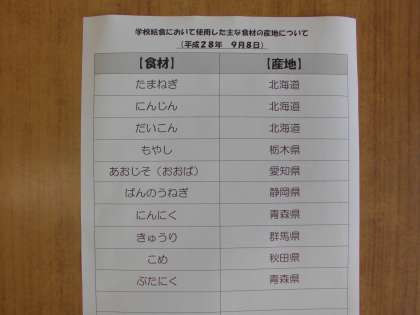 学校給食において使用した主な食材の産地について
（平成２８年　９月８日）
【食材】　【産地】
たまねぎ　北海道
にんじん　北海道
だいこん　北海道
もやし　栃木県
あおじそ（おおば）　愛知県
ばんのうねぎ　静岡県
にんにく　青森県
きゅうり　群馬県
こめ　秋田県
ぶたにく　青森県